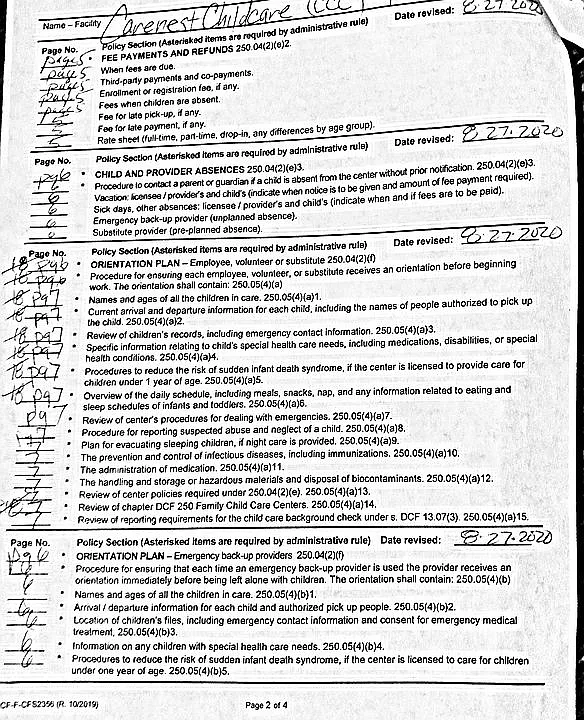 Name – Facility Carenest Childcare (CCC) Date revised: 8.27.2020
Page No. Policy Section (Asterisked items are required by administrative rule)
pages * FEE PAYMENTS AND REFUNDS 250.04(2)(e)2.
page 5 When fees are due.
page 5 Third-party payments and co-payments.
page 5 Enrollment or registration fee, if any.
page 5 Fees when children are absent.
5 Fee for late pick-up, if any.
5 Fee for late payment, if any.
5 Rate sheet (full-time, part-time, drop-in, any differences by age group).
Page No. Policy Section (Asterisked items are required by administrative rule) Date revised: 8.27.2020
* CHILD AND PROVIDER ABSENCES 250.04(2)(e)3.
pg 6 * Procedure to contact a parent or guardian if a child is absent from the center without prior notification. 250.04(2)(e)3.
6 Vacation: licensee / provider's and child's (indicate when notice is to be given and amount of fee payment required).
6 Sick days, other absences: licensee / provider's and child's (indicate when and if fees are to be paid).
6 Emergency back-up provider (unplanned absence).
6 Substitute provider (pre-planned absence).
Page No. Policy Section (Asterisked items are required by administrative rule) Date revised: 8.27.2020
pg 6 * ORIENTATION PLAN – Employee, volunteer or substitute 250.04(2)(f)
pg 6 * Procedure for ensuring each employee, volunteer, or substitute receives an orientation before beginning
work. The orientation shall contain: 250.05(4)(a)
pg 7 * Names and ages of all the children in care. 250.05(4)(a)1.
pg 7 * Current arrival and departure information for each child, including the names of people authorized to pick up
the child. 250.05(4)(a)2.
pg 7 * Review of children's records, including emergency contact information. 250.05(4)(a)3.
pg 7 * Specific information relating to child's special health care needs, including medications, disabilities, or special
health conditions. 250.05(4)(a)4.
pg 7 * Procedures to reduce the risk of sudden infant death syndrome, if the center is licensed to provide care for
children under 1 year of age. 250.05(4)(a)5.
pg 7 * Overview of the daily schedule, including meals, snacks, nap, and any information related to eating and
sleep schedules of infants and toddlers. 250.05(4)(a)6.
pg 7 * Review of center's procedures for dealing with emergencies. 250.05(4)(a)7.
7 * Procedure for reporting suspected abuse and neglect of a child. 250.05(4)(a)8.
7 * Plan for evacuating sleeping children, if night care is provided. 250.05(4)(a)9.
7 * The prevention and control of infectious diseases, including immunizations. 250.05(4)(a)10.
7 * The administration of medication. 250.05(4)(a)11.
7 * The handling and storage or hazardous materials and disposal of biocontaminants. 250.05(4)(a)12.
7 * Review of center policies required under 250.04(2)(e). 250.05(4)(a)13.
7 * Review of chapter DCF 250 Family Child Care Centers. 250.05(4)(a)14.
7 * Review of reporting requirements for the child care background check under s. DCF 13.07(3). 250.05(4)(a)15.
Page No. Policy Section (Asterisked items are required by administrative rule) Date revised: 8.27.2020
pg 6 * ORIENTATION PLAN – Emergency back-up providers 250.04(2)(f)
6 * Procedure for ensuring that each time an emergency back-up provider is used the provider receives an
orientation immediately before being left alone with children. The orientation shall contain: 250.05(4)(b)
6 * Names and ages of all the children in care. 250.05(4)(b)1.
6 * Arrival / departure information for each child and authorized pick up people. 250.05(4)(b)2.
6 * Location of children's files, including emergency contact information and consent for emergency medical
treatment. 250.05(4)(b)3.
6 * Information on any children with special health care needs. 250.05(4)(b)4.
6 * Procedures to reduce the risk of sudden infant death syndrome, if the center is licensed to care for children
under one year of age. 250.05(4)(b)5.
CF-F-CFS2356 (R. 10/2019) Page 2 of 4